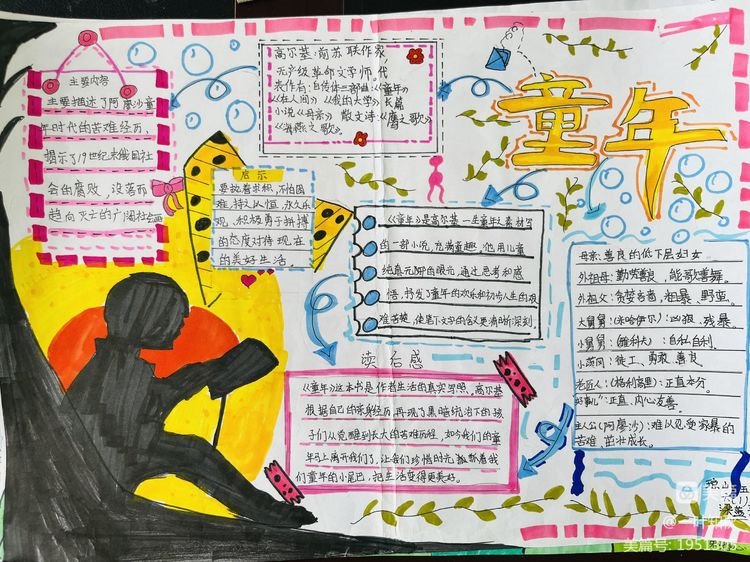 童年
主要内容
主要描述了阿廖沙童
年时代的苦难经历，
揭示了19世纪末俄国社
会的腐败，没落而
趋向灭亡的广阔社会画
高尔基：前苏联作家，
无产级革命文学师，代
表作有：自传体三部曲：《童年》
《在人间》《我的大学》长篇
小说《母亲》散文诗：《鹰之歌》
《海燕之歌》。
启示
要执着求积，不怕困
难，持之以恒，永久乐
观，积极勇于拼搏
的态度对待现在
的美好生活
《童年》是高尔基一生童年元素
的一部小说，充满童趣，他用儿童
纯真无邪的眼光，通过思考和感
悟，抒发了童年的欢乐和初步人生的艰
难苦楚，使笔下文字的含义更清晰深刻
读后感
《童年》这本书是作者生活的真实写照。高尔基
根据自己的亲身经历，再现了黑暗统治下的孩
子们从觉醒到长大的苦难历程，如今我们的童
年马上离开我们了，让我们珍惜时光抓紧着我
们童年的小尾巴，把生活变得更美好。
母亲：善良的低下层妇女
外祖母：勤劳善良，能歌善舞。
外祖父：贪婪吝啬，粗暴、野蛮。
大舅舅：（米哈伊尔）：凶狠、残暴。
小舅舅：（雅科夫）：自私自利。
小茨冈：徒工、勇敢、善良
老匠人：（格利高里）：正直本分。
"好事儿"：正直、内心友善。
主人公（阿廖沙）：难以忍受家暴的
苦难，茁壮成长。
美篇